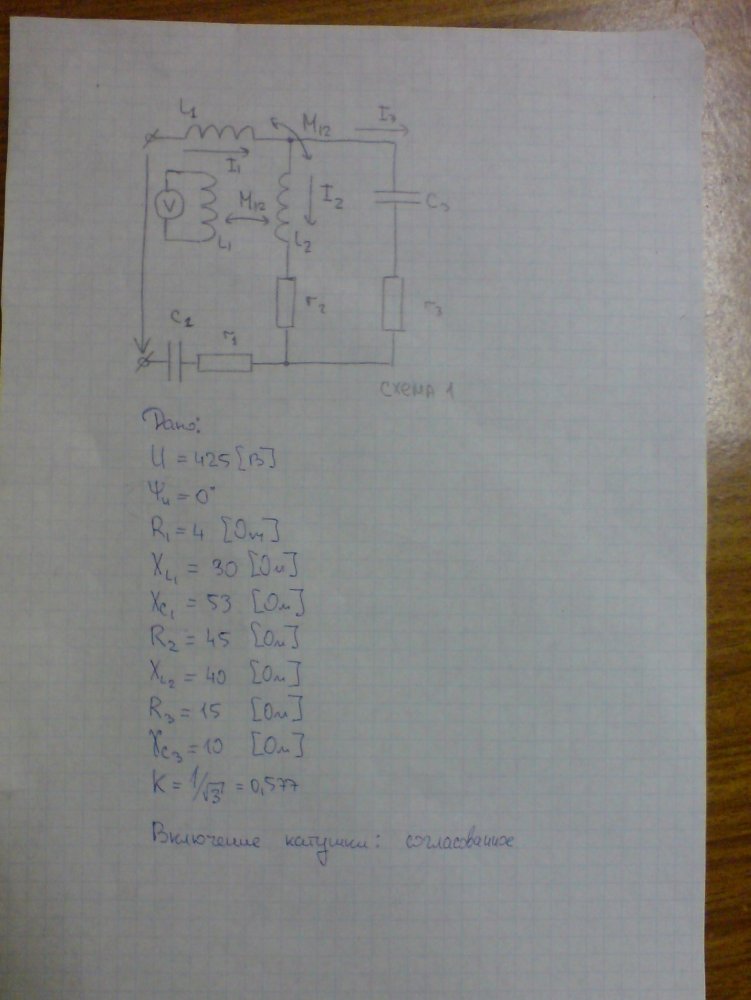 L1
M12
I3
I1
V
M12
I2
C3
L1
L2
r2
r3
C1
r1
СХЕМА 1
Дано:
U = 425 [В]
Ψu = 0°
R1 = 4 [Ом]
XL1 = 30 [Ом]
XC1 = 53 [Ом]
R2 = 45 [Ом]
XL2 = 40 [Ом]
R3 = 15 [Ом]
XC3 = 10 [Ом]
K = 1/√3 = 0,577
Включение катушки: согласованное